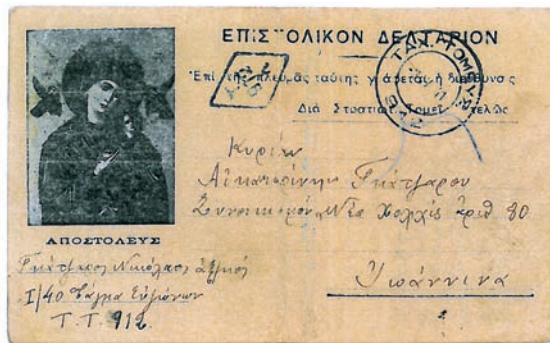 ΕΠΙΣΤΟΛΙΚΟΝ ΔΕΛΤΑΡΙΟΝ
Ἐπὶ τῆς πλευρᾶς ταύτης γράφεται ἡ διεύθυνσις
Διὰ Στρατιωτ. Τομεῖς ἀτελῶς
ΤΑΧ. ΤΟΜΕΥΣ
Κυρίαν
Αἰκατερίνην Γκάτζαρου
Συνοικισμόν Νέα ἀριθ 80
Ἰωάννινα
ΑΠΟΣΤΟΛΕΥΣ
Γκάτζαρος Νικόλαος
Ι/40 Τάγμα Εὐζώνων
Τ.Τ. 912